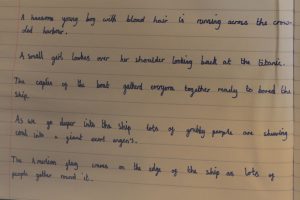 A handsome young boy with blond hair is running across the crow-
ded harbour.
A small girl looks over her shoulder looking back at the titanic.
The captin of the boat gatherd everyone together ready to bored the
ship.
As we go deeper into the ship lots of grubby people are shuveing
coal into a giant
The American flag waves on the edge of the ship as lots of
people gather round it.